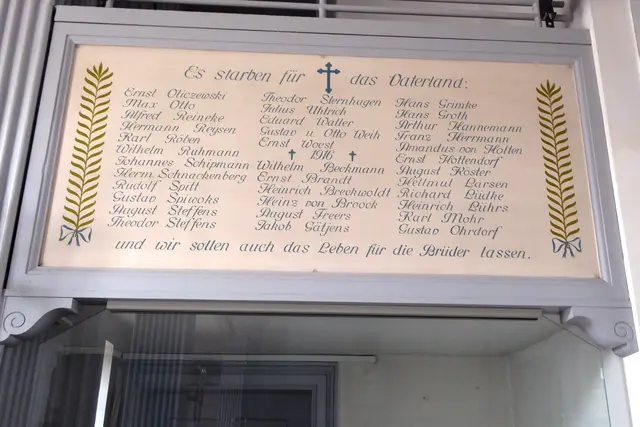 Es starben für das Vaterland:
Ernst Oliczewski
Max Otto
Alfred Reineke
Hermann Reysen
Karl Röben
Wilhelm Ruhmann
Johannes Schipmann
Herm. Schnackenberg
Rudolf Spilt
Gustav Spivoks
August Steffens
Theodor Steffens
Theodor Sternhagen
Julius Uhlrich
Eduard Waller
Gustav u. Otto Weih
Ernst Woest
1916
Wilhelm Beckmann
Ernst Brandt
Heinrich Brechwoldt
Heinz von Broock
August Freers
Jakob Gätjens
Hans Grimke
Hans Groth
Arthur Hannemann
Franz Herrmann
Amandus von Holten
Ernst Hottendorf
August Köster
Hellmut Larsen
Richard Lüdke
Heinrich Lührs
Karl Mohr
Gustav Ohrdorf
und wir sollen auch das Leben für die Brüder lassen.